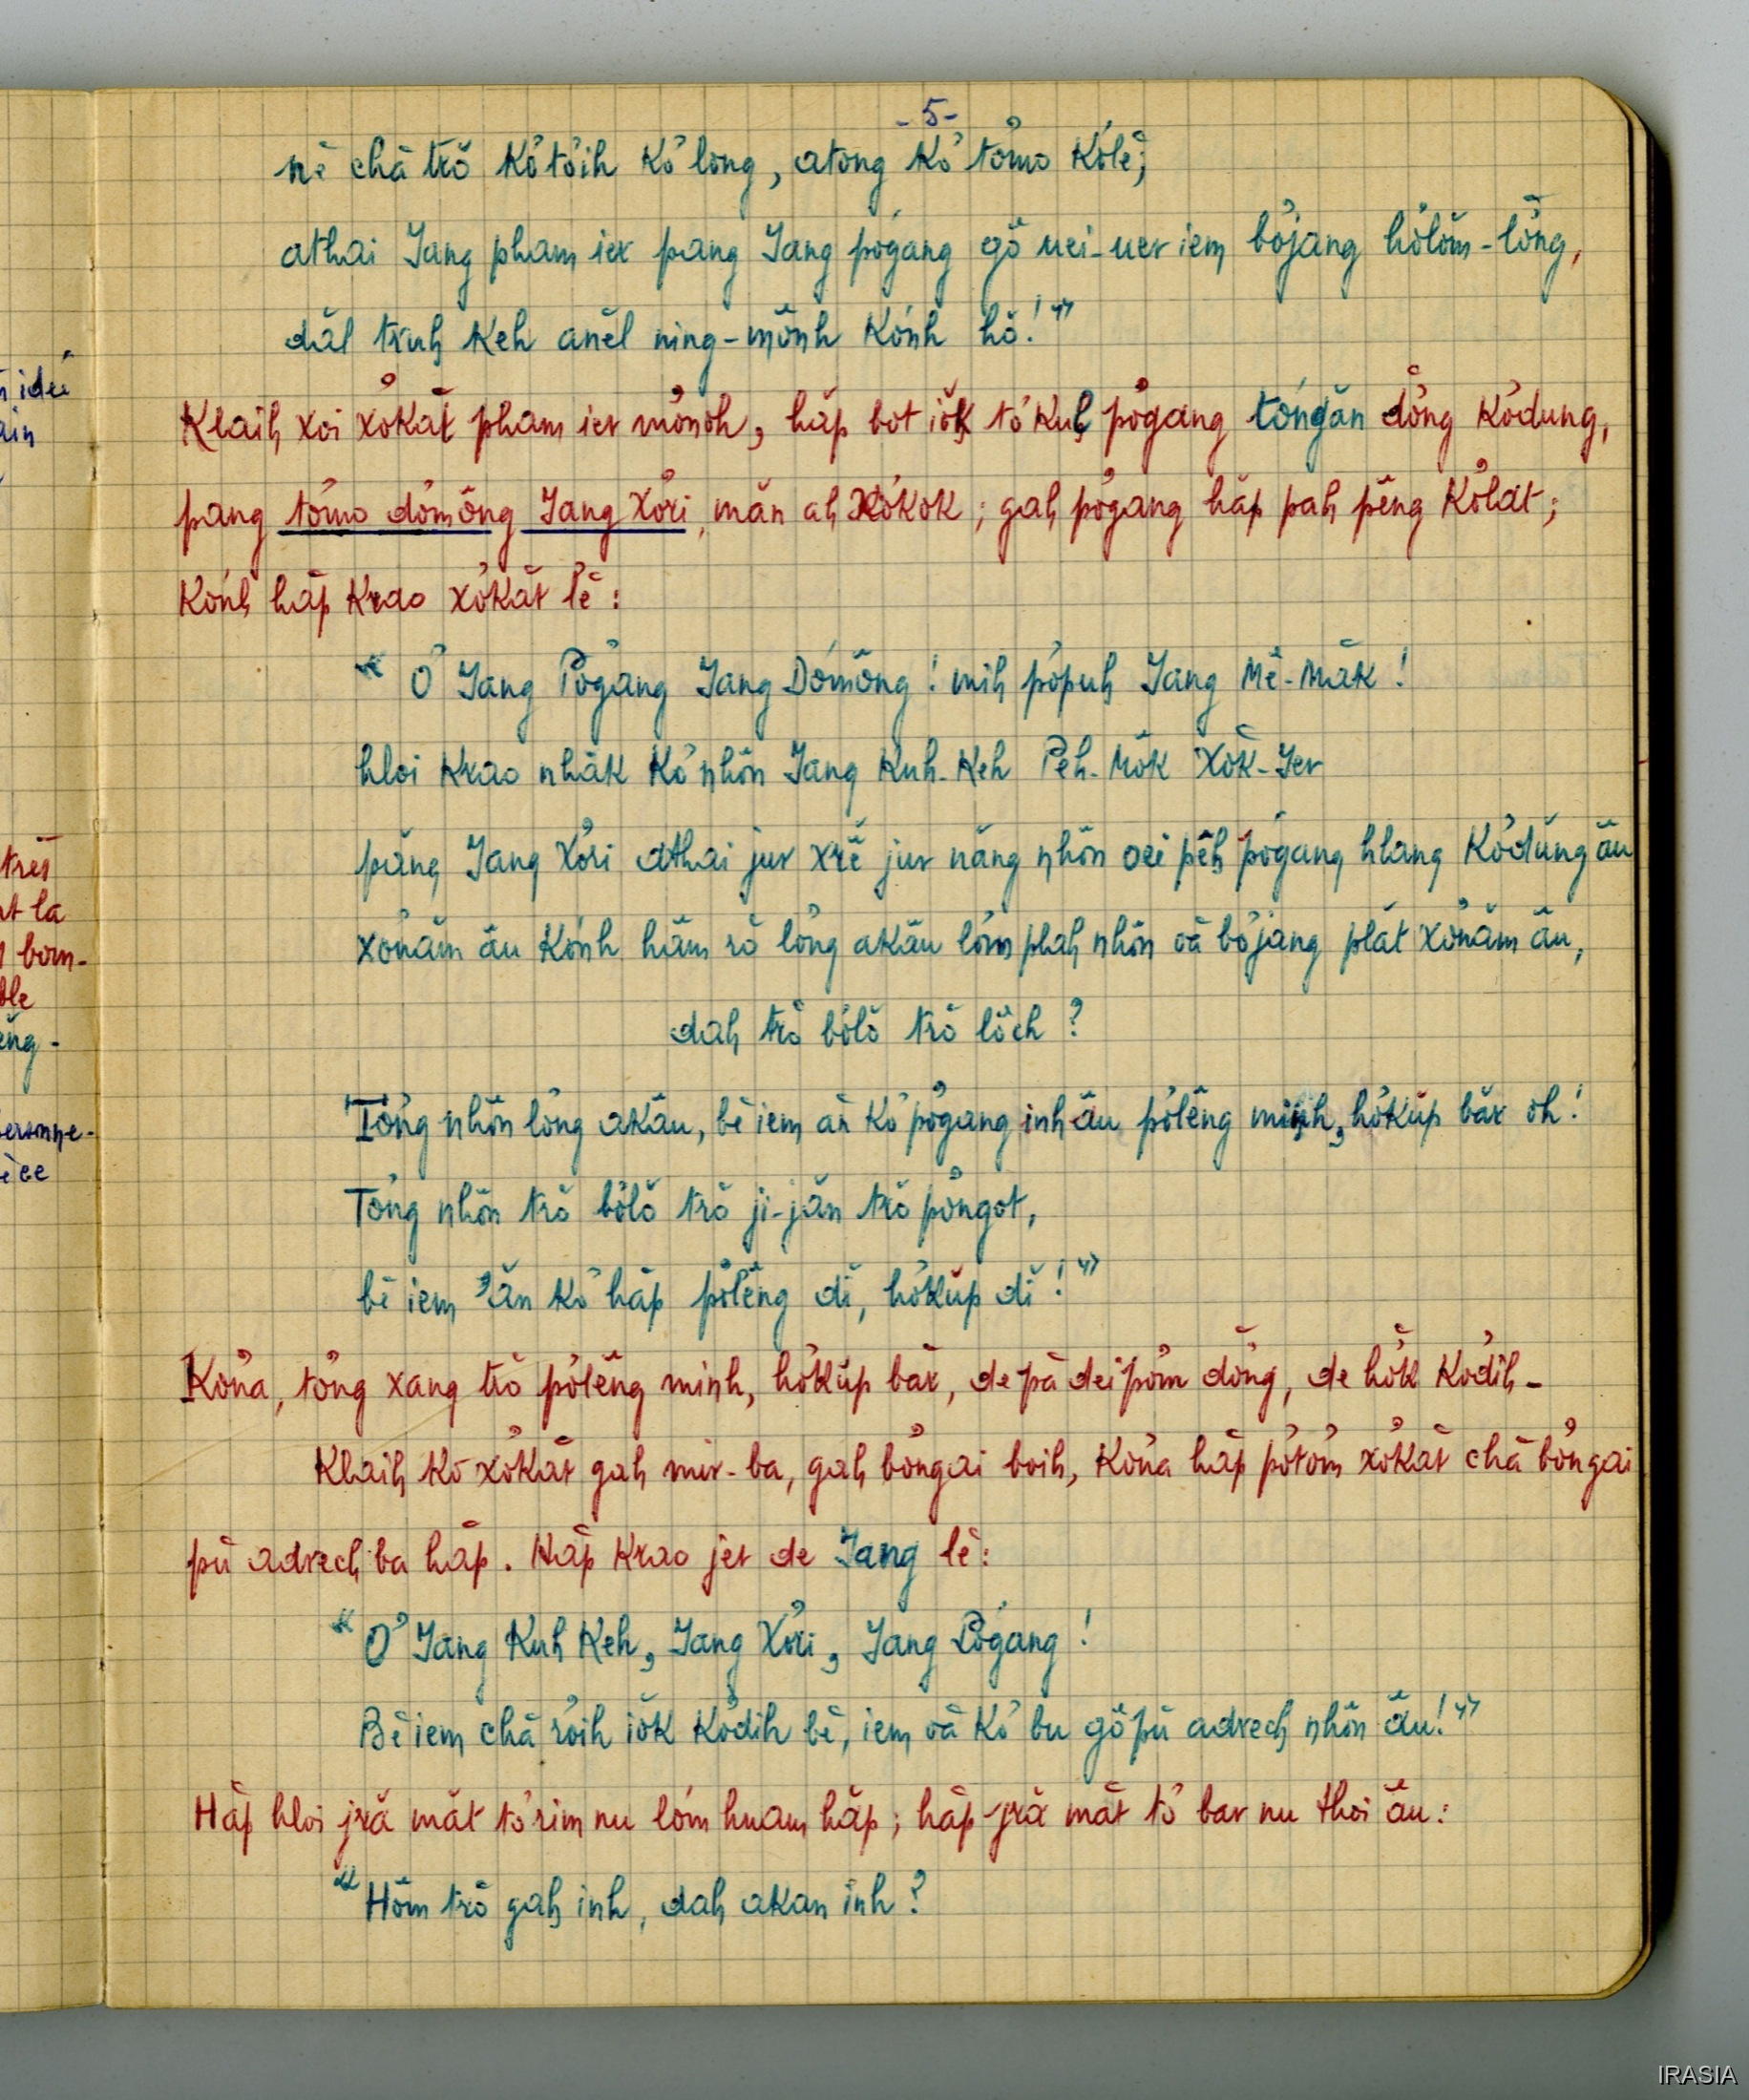 - 5 -
nĕ chă trŏ kơ tơih kơ long, atong kơ tơmo kơlĕ;
athai Jang pham ier pang Jang pơgang gô uei-uer iem bơjang hơlŏm-lơng,
dăl truh keh anĕl ning-mônh kơnh hŏ! »
Klaih xoi xơkăt pham ier mơnoh, hăp bot iŏk tơ kuh pơgang tơngăn dơ̆ng kơdung,
pang tơmo dơmông Jang Xơri, măn ah kơkok; gah pơgang hăp pah pêng kơlat;
kơnh hăp krao xơkăt lĕ:
« Ơ Jang Pơgang Jang Dơmông! mih pơpuh Jang Mĕ-Măk!
hloi krao nhăk kơ nhôn Jang Kuh-Keh Pĕh-Mŏk Xŏk-Ier
păng Jang Xơri athai jur xrĕ jur năng nhôn oei pĕh pơgang hlang kơdŭng ău
xơnăm ău kơnh hăm rŏ lơng akău lơm plah nhôn oă bơjang plăt xơnăm ău,
dah trŏ bơlŏ trŏ lôch?
Tơng nhôn lơng akău, bĕ iem ăn kơ pơgang inh ău pơlĕng minh, hơkŭp băr oh!
Tơng nhôn trŏ bơlŏ trŏ ji-jăn trŏ pơngot,
bĕ iem ăn kơ hăp pơlĕng dĭ, hơkŭp dĭ! »
Kơna, tơng xang trŏ pơlĕng minh, hơkŭp băr, de pă dei pơm dơ̆ng, de hơ̆k kơdih -
Klaih kơ xơkăt gah mir-ba, gah bơngai boih, kơna hăp pơtơm xơkăt chă bơngai
pŭ adrech ba hăp. Hăp krao jet de Jang lĕ:
« Ơ Jang Kuh Keh, Jang Xơri, Jang Pơgang!
Bĕ iem chă rơih iŏk kơdih bĕ, iem oă kơ bu gô pŭ adrech nhôn ău! »
Hăp hloi jră măt tơ rim nu lơm hnam hăp; hăp jră măt tơ bar nu thoi ău:
« Hŏm trŏ gah inh, dah akan inh?
IRASIA